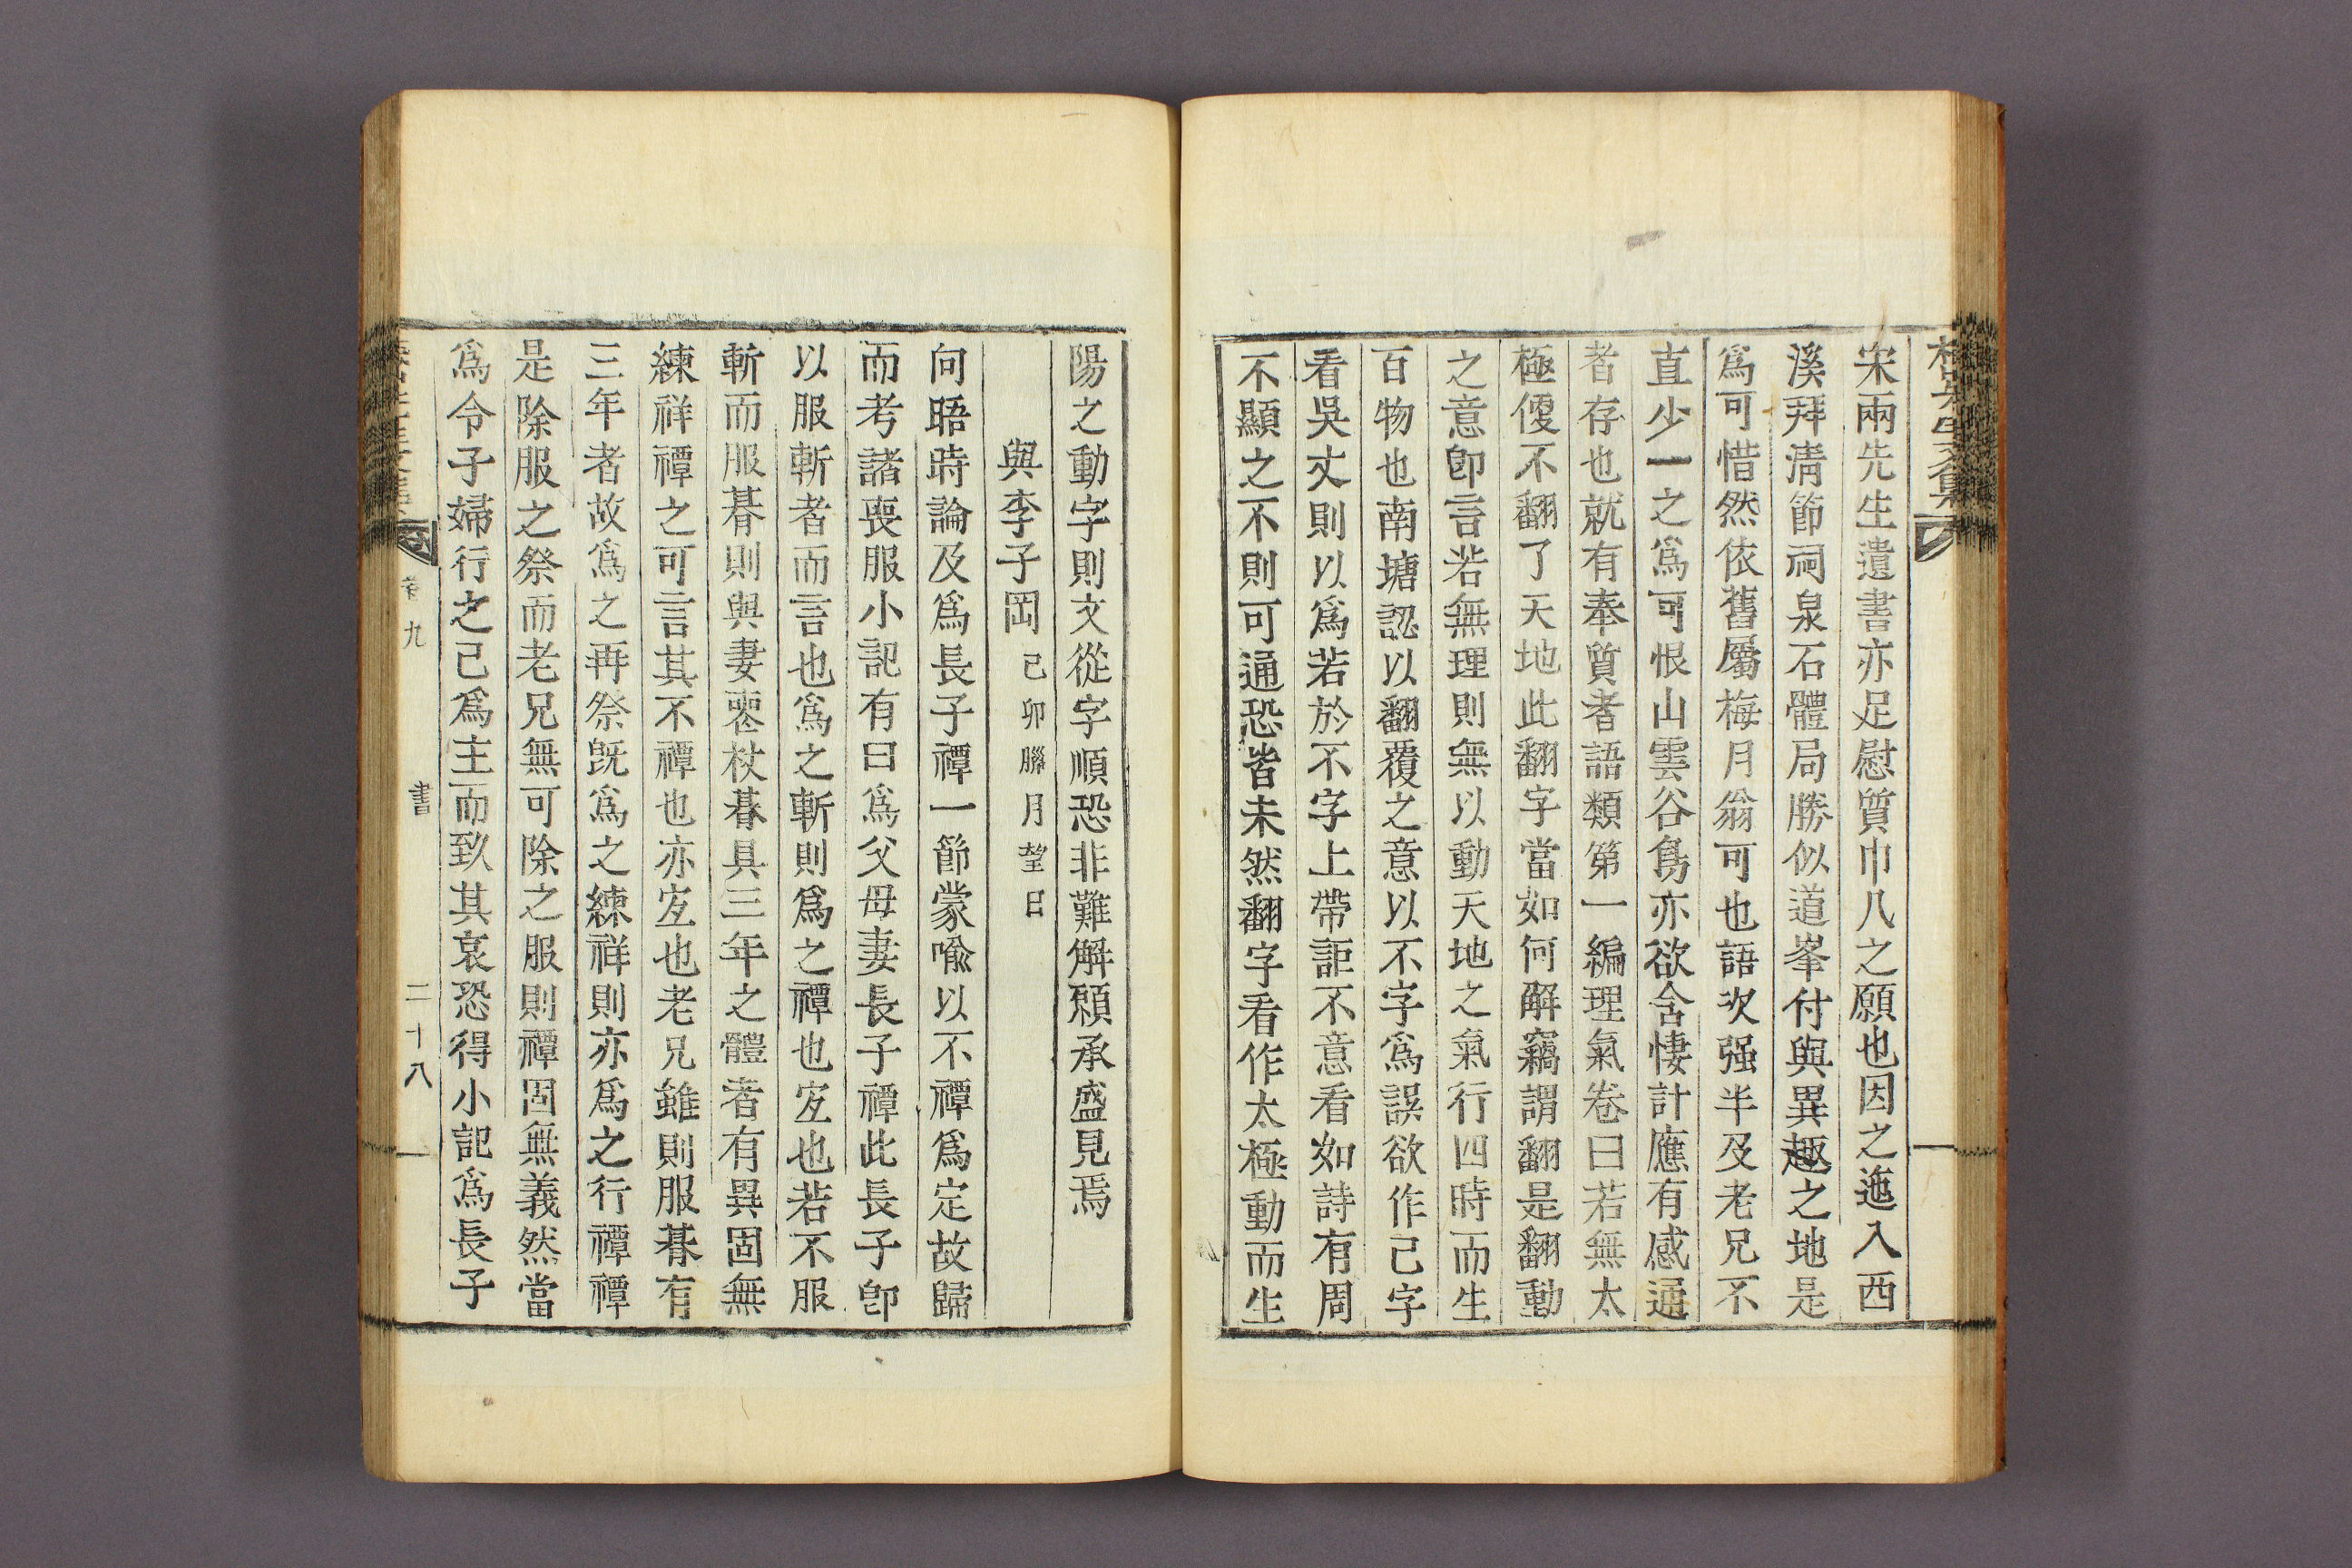 宋兩先生遺書亦足慰質巾八之願也因之迤入西
溪拜淸節祠泉石體局勝似道峯付與異趣之地是
爲可惜然依舊屬梅月翁可也語次强半及老兄不
直少一之爲可恨山雲谷鳥亦欲含悽計應有感通
者存也就有奉質者語類第一編理氣卷曰若無太
極便不翻了天地此翻字當如何解竊謂翻是翻動
之意卽言若無理則無以動天地之氣行四時而生
百物也南塘認以翻覆之意以不字爲誤欲作已字
看吳丈則以爲若於不字上帶詎不意看如詩有周
不顯之不則可通恐皆未然翻字看作太極動而生
陽之動字則文從字順恐非難解願承盛見焉
與李子岡 己卯臘月望日
向晤時論及爲長子禫一節蒙喩以不禫爲定故歸
而考諸喪服小記有曰爲父母妻長子禫此長子卽
以服斬者而言也爲之斬則爲之禫也宐也若不服
斬而服朞則與妻喪杖朞具三年之體者有異固無
練祥禫之可言其不禫也亦宐也老兄雖則服朞有
三年者故爲之再祭旣爲之練祥則亦爲之行禫禫
是除服之祭而老兄無可除之服則禫固無義然當
爲令子婦行之已爲主而致其哀恐得小記爲長子
卷九 書 二十八